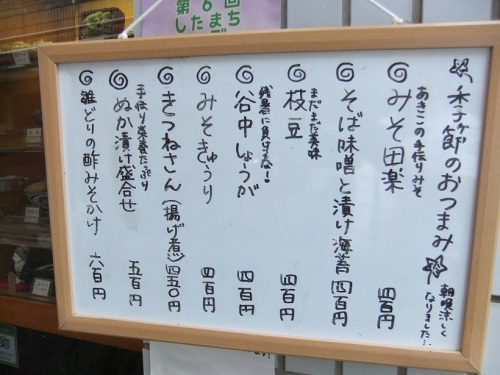 季節のおつまみ
朝晩涼しく
なりました…
あきこの手作りみそ
みそ田楽 四百円
そば味噌と漬け海苔 四百円
まだまだ美味
枝豆 四百円
残暑に負けるな!
谷中しょうが 四百円
みそきゅうり 四百円
きつねさん(揚げ煮) 四五〇円
手作り 栄養たっぷり
ぬか漬け盛合せ 五百円
雛どりの酢みそかけ 六百円
第6回
したまち